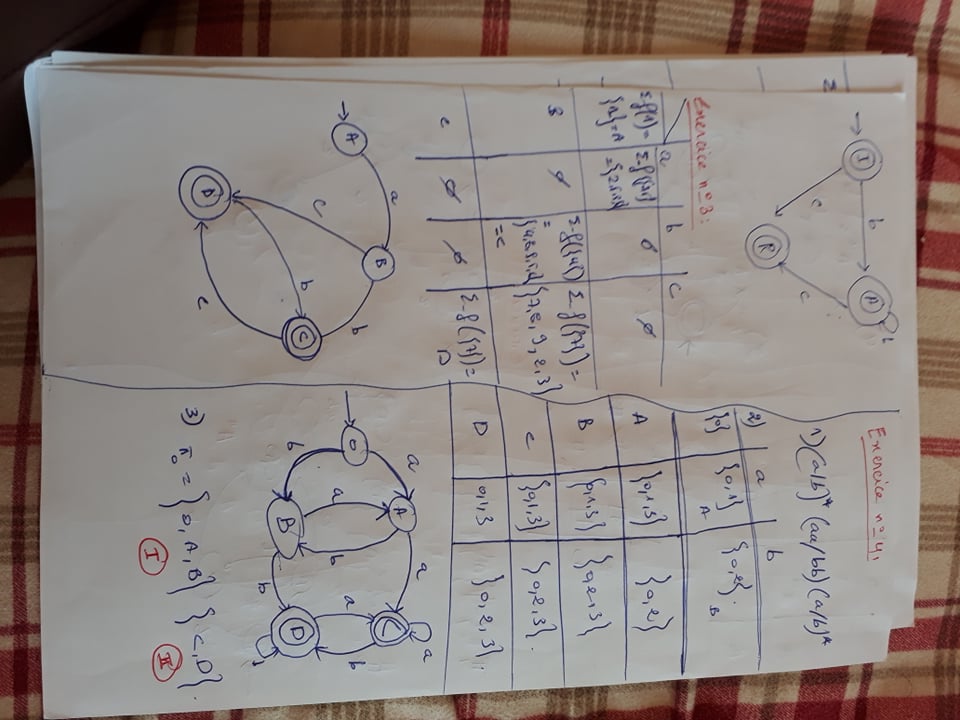 I b A b
c c
R
Exercice n°3:
a b c
Σ-f(1)= Σ-f({2,
{1,2}=A ∅ ∅
B ∅ Σ-f({4}) Σ-f({7})=
= {7,8,9,2,3}
=C
C ∅ ∅ Σ-f({7})=
D
A a B b C
c b c
D
Exercice n°4.
1) (a/b)* (aa/bb) (a/b)*
2) a b
{0} {0,1} A {0,2}. B
A {0,1,3} {0,2}
B {0,1,3} {0,2,3}
C {0,1,3} {0,2,3}.
D 0,1,3 {0,2,3}.
0 a A a C a
b a b a b
B b D
3) π₀ = {0, A, B} {C, D}.
I II